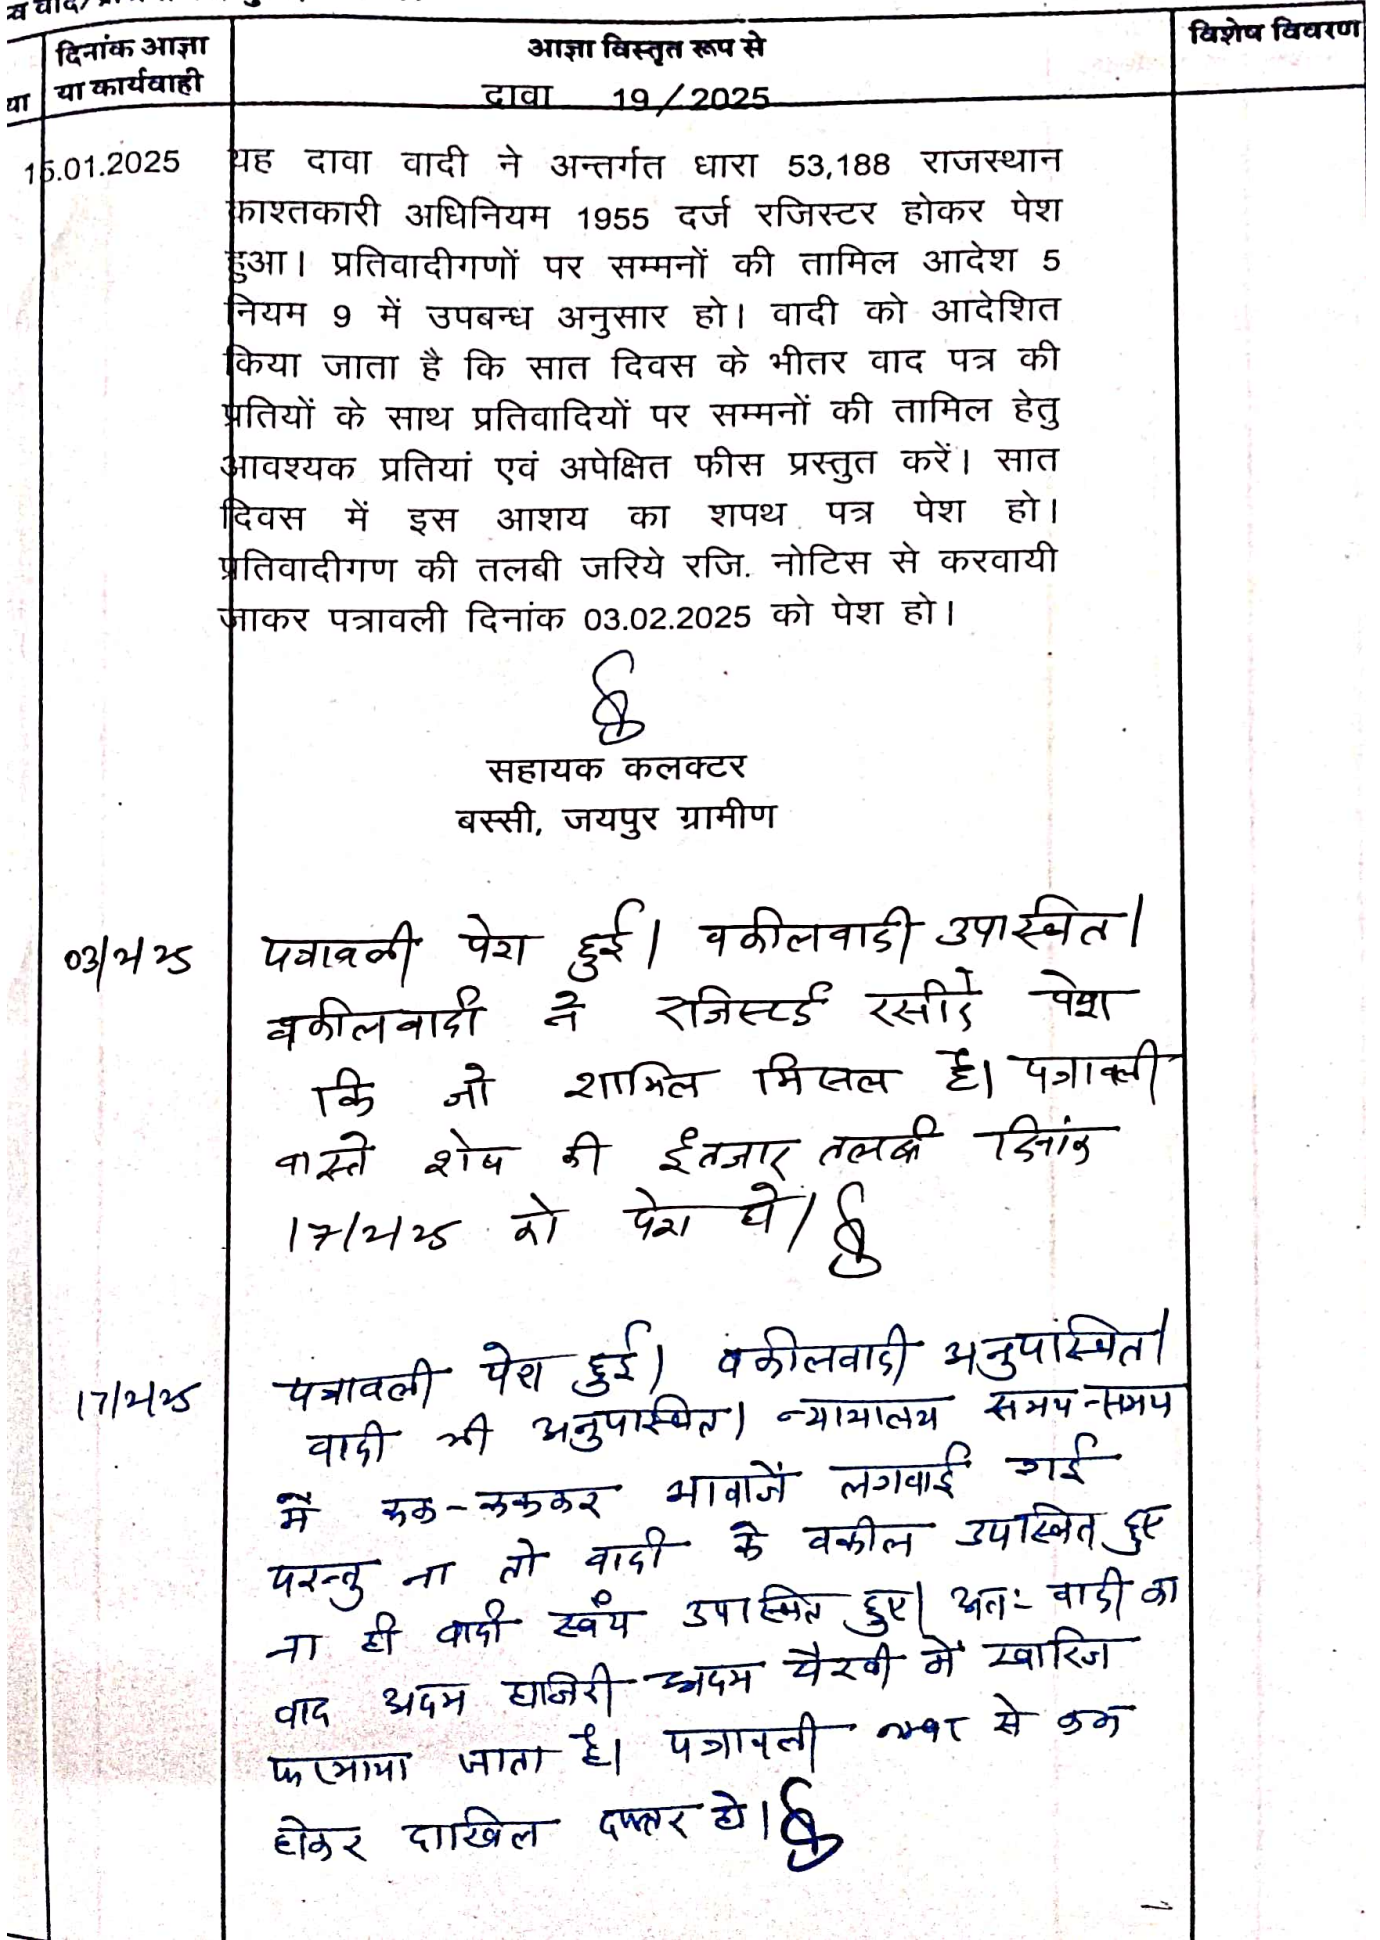 दिनांक आज्ञा
या कार्यवाही
आज्ञा विस्तृत रूप से
विशेष विवरण
या
दावा 19/2025
15.01.2025
यह दावा वादी ने अन्तर्गत धारा 53,188 राजस्थान
काश्तकारी अधिनियम 1955 दर्ज रजिस्टर होकर पेश
हुआ। प्रतिवादीगणों पर सम्मनों की तामिल आदेश 5
नियम 9 में उपबन्ध अनुसार हो। वादी को आदेशित
किया जाता है कि सात दिवस के भीतर वाद पत्र की
प्रतियों के साथ प्रतिवादियों पर सम्मनों की तामिल हेतु
आवश्यक प्रतियां एवं अपेक्षित फीस प्रस्तुत करें। सात
दिवस में इस आशय का शपथ पत्र पेश हो।
प्रतिवादीगण की तलबी जरिये रजि. नोटिस से करवायी
जाकर पत्रावली दिनांक 03.02.2025 को पेश हो।
सहायक कलक्टर
बस्सी, जयपुर ग्रामीण
03/2/25
पत्रावली पेश हुई। वकीलवादी उपस्थित।
वकीलवादी ने रजिस्टर्ड रसीदे पेश
कि जो शामिल मिसल है। पत्रावली
वास्ते शेष की इंतजार तलबी दिनांक
17/2/25 को पेश हो।
17/2/25
पत्रावली पेश हुई। वकीलवादी अनुपस्थित।
वादी भी अनुपस्थित। न्यायालय समय-समय
में रूक-रूककर आवाजें लगवाई गई
परन्तु ना तो वादी के वकील उपस्थित हुए
ना ही वादी स्वंय उपस्थित हुए। अतः वादी का
वाद अदम हाजिरी अदम पैरवी में खारिज
फरमाया जाता है। पत्रावली नम्बर से कम
होकर दाखिल दफ्तर हो।